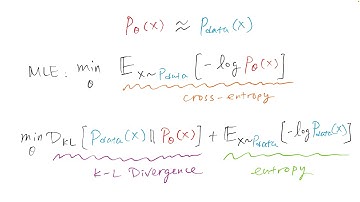 Pθ(x) ≈ Pdata(x)
MLE: min θ 𝔼x~Pdata [-log Pθ(x)]
cross-entropy
min θ DKL [Pdata(x) || Pθ(x)] + 𝔼x~Pdata [-log Pdata(x)]
K-L Divergence entropy